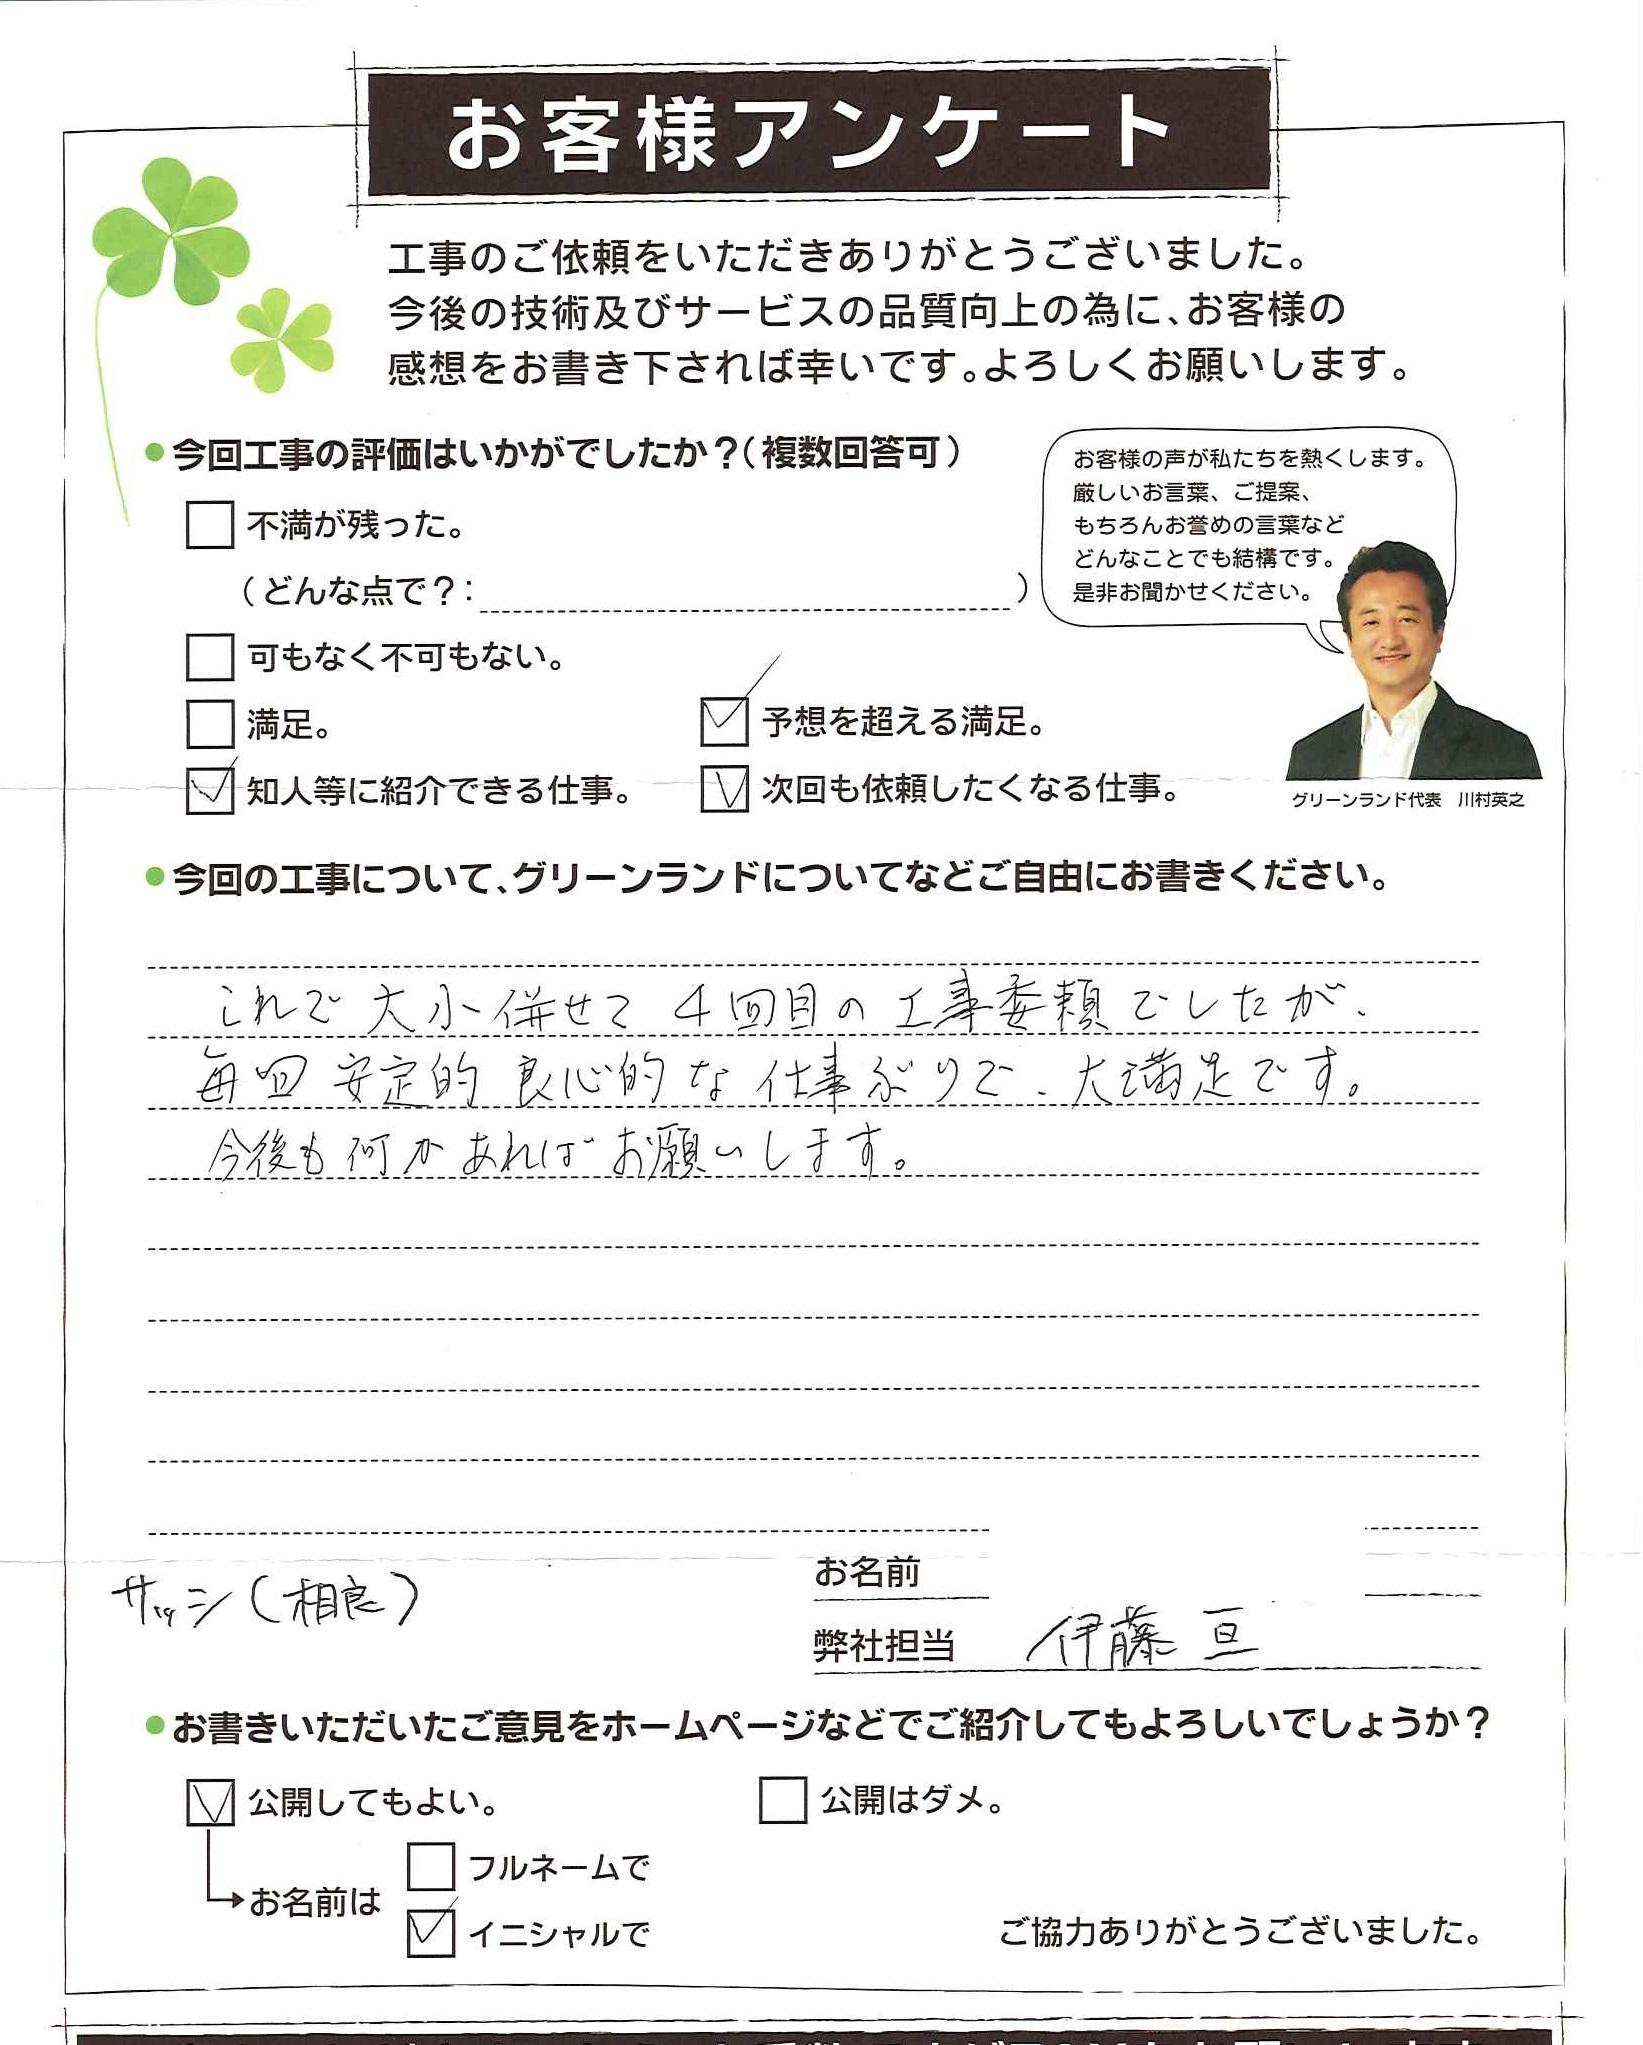 お客様アンケート
工事のご依頼をいただきありがとうございました。
今後の技術及びサービスの品質向上の為に、お客様の
感想をお書き下されば幸いです。よろしくお願いします。
●今回工事の評価はいかがでしたか？（複数回答可）
お客様の声が私たちを熱くします。
厳しいお言葉、ご提案、
もちろんお誉めの言葉など
どんなことでも結構です。
是非お聞かせください。
グリーンランド代表　川村英之
不満が残った。
（どんな点で？：　）
可もなく不可もない。
満足。　予想を超える満足。
知人等に紹介できる仕事。　次回も依頼したくなる仕事。
●今回の工事について、グリーンランドについてなどご自由にお書きください。
これで大小併せて4回目の工事委頼でしたが、
毎回安定的良心的な仕事ぶりで、大満足です。
今後も何かあればお願いします。
お名前
サッシ（相良）
弊社担当　伊藤 亘
●お書きいただいたご意見をホームページなどでご紹介してもよろしいでしょうか？
公開してもよい。　公開はダメ。
フルネームで
お名前は
イニシャルで
ご協力ありがとうございました。